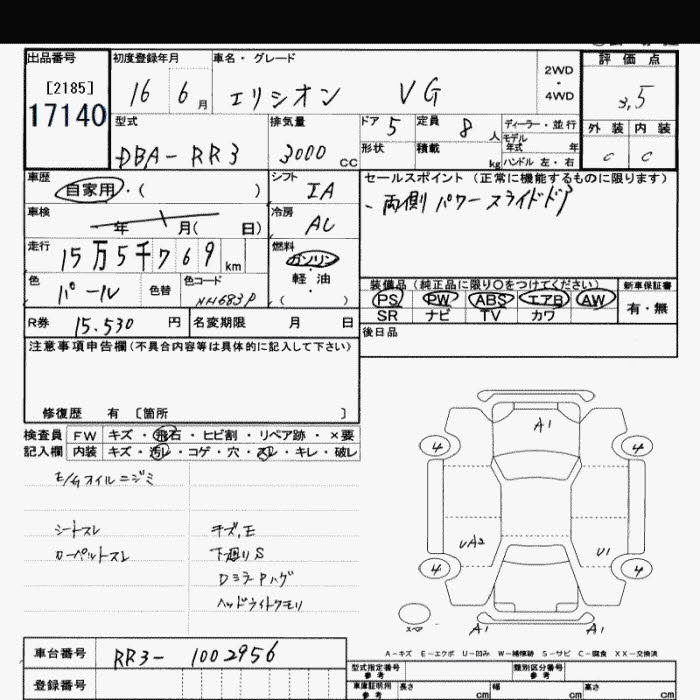 出品番号 初度登録年月 車名・グレード 評価点
[2185] 17140 16 6月 エリシオン VG 2WD・4WD 3,5
型式 排気量 ドア 5 定員 8人 ディーラー・並行 外装 内装
DBA-RR3 3000cc 形状 積載 kg モデル年式 年 ハンドル 左・右 C C
車歴 自家用・( ) シフト IA セールスポイント(正常に機能するものに限ります)
車検 年 月( 日) 冷房 AC 両側パワースライドドア
走行 15万5千769km 燃料 ガソリン・軽油・( )
色 パール 色替 色コード NH683P 装備品(純正品に限り○をつけてください) 新車保証書
PS PW ABS エアB AW 有・無
SR ナビ TV カワ
R券 15.530円 名変期限 月 日 後日品
注意事項申告欄(不具合内容等は具体的に記入して下さい)
修復歴 有 [箇所 ]
検査員 FW キズ・飛石・ヒビ割・リペア跡・×要
記入欄 内装 キズ・汚レ・コゲ・穴・スレ・キレ・破レ
E/Gオイルニジミ
シートスレ キズ,E
カーペットスレ 下廻りS
DミラーPハゲ
ヘッドライトクモリ
A1
4 4
UA2 U1
4 4
スペア A1 A1
A-キズ E-エクボ U-凹み W-補修跡 S-サビ C-腐食 XX-交換済
車台番号 RR3-1002956 型式指定番号 参考 類別区分番号 参考
登録番号 車庫証明用 参考 長さ cm 幅 cm 高さ cm